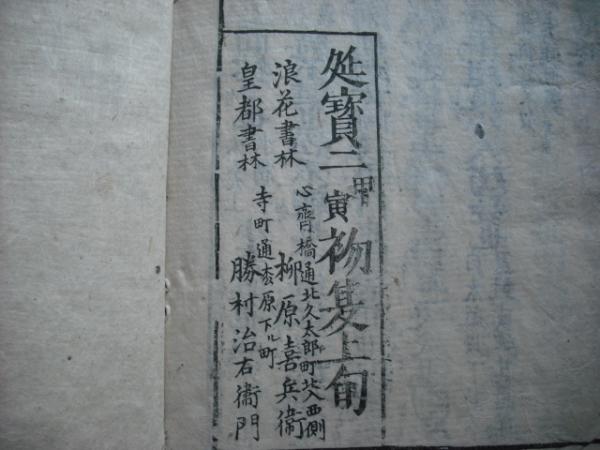 延寳二甲寅初夏上旬
浪花書林 心齊橋通北久太郎町北入西側
柳原喜兵衛
皇都書林 寺町通松原下ル町
勝村治右衞門